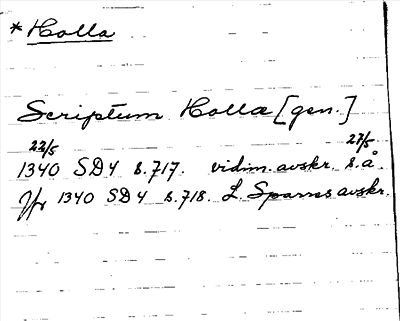 * Holla
Scriptum Hollæ [gen.]
22/5 27/5
1340 SD4 s.717. vidim. avskr. s.å.
Jfr 1340 SD4 s.718. L. Sparres avskr.